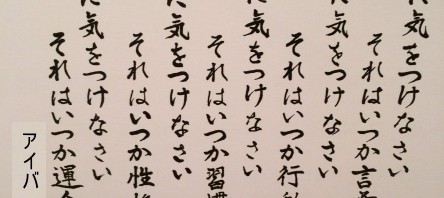 に気をつけなさい
それはいつか言葉
に気をつけなさい
それはいつか行動
に気をつけなさい
それはいつか習慣
に気をつけなさい
それはいつか性格
に気をつけなさい
それはいつか運命
アイバ